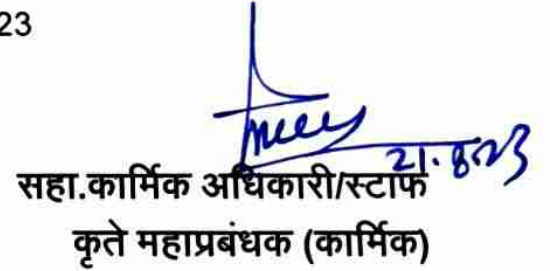 23
21.8.23
सहा.कार्मिक अधिकारी/स्टाफ
कृते महाप्रबंधक (कार्मिक)